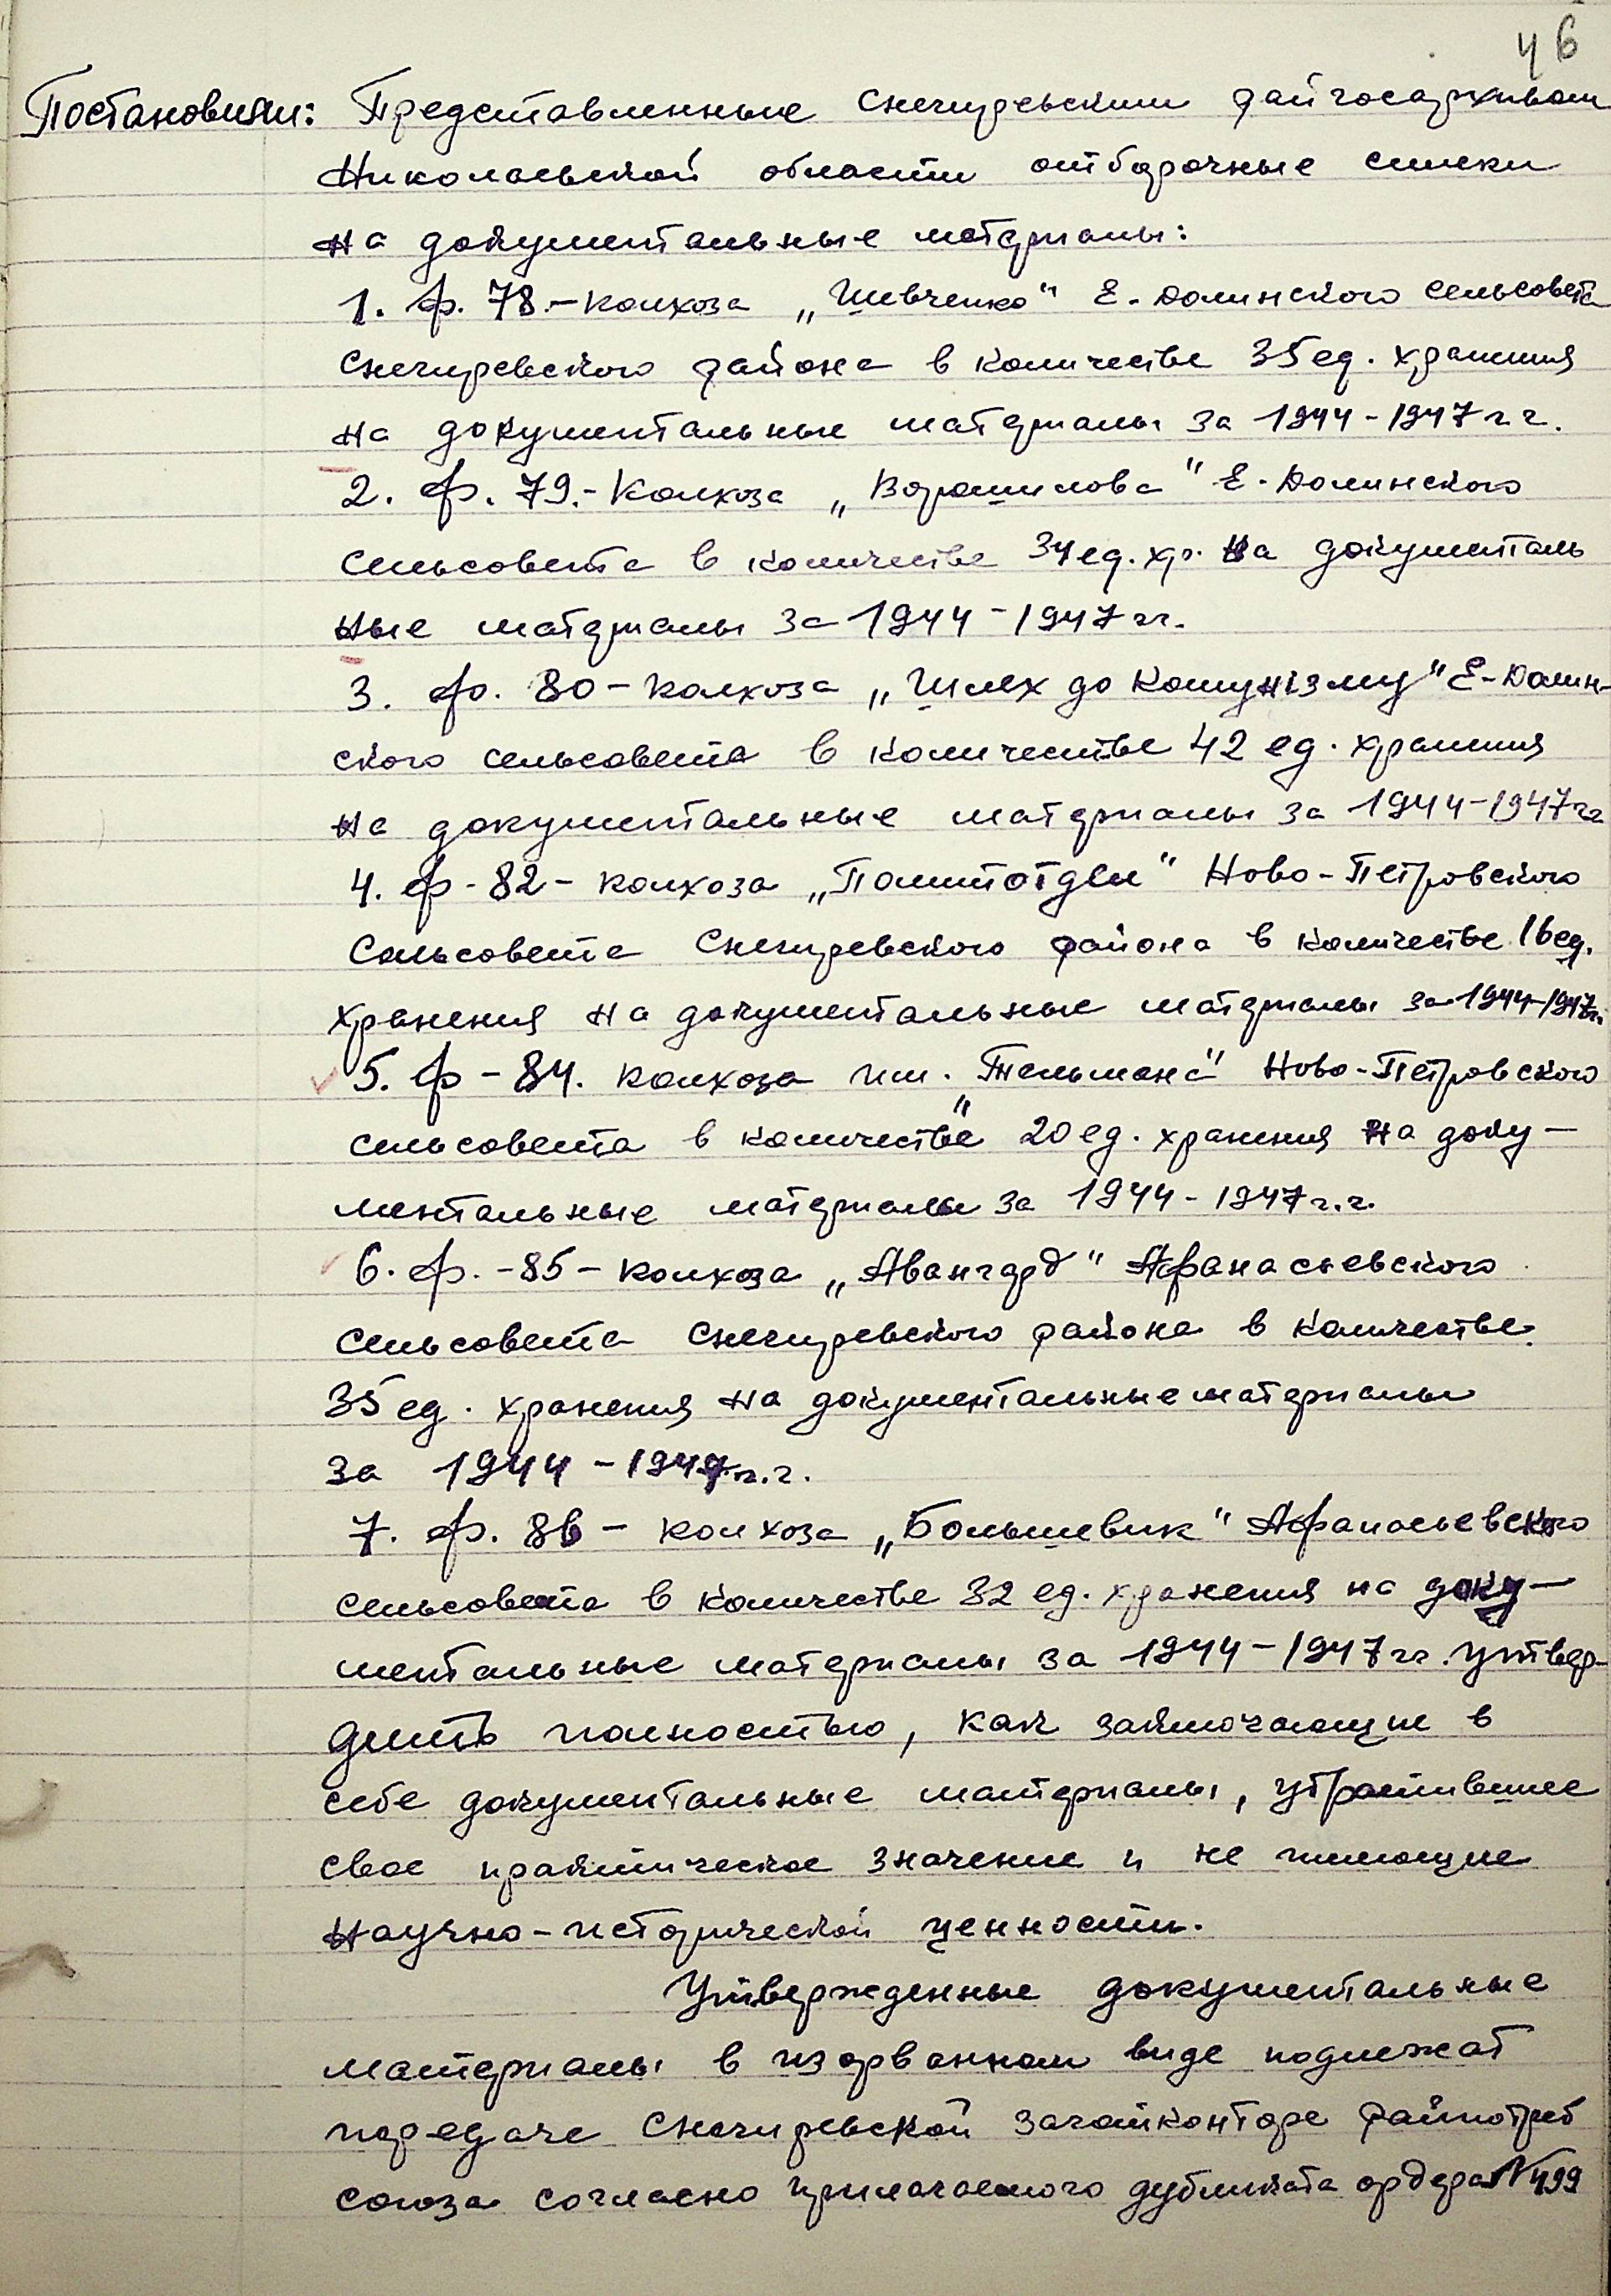 46
Постановили: Представленные Снегиревским райгосархивом
Николаевской области отборочные списки
на документальные материалы:
1. ф. 78.- колхоза „Шевченко" Е.-Долинского сельсовета
Снегиревского района в количестве 35 ед. хранения
на документальные материалы за 1944-1947 г.г.
2. ф. 79.- Колхоза „Ворошилова" Е.-Долинского
сельсовета в количестве 34 ед. хр. на документаль
ные материалы за 1944-1947 гг.
3. ф. 80 - колхоза „Шлях до Комунізму" Е-Долин-
ского сельсовета в количестве 42 ед. хранения
на документальные материалы за 1944-1947 гг
4. ф - 82 - колхоза „Политотдел" Ново-Петровского
Сельсовета Снегиревского района в количестве 16 ед.
хранения на документальные материалы за 1944-1947 гг.
5. ф - 84. колхоза им. „Тельмана" Ново-Петровского
сельсовета в количестве 20 ед. хранения на доку-
ментальные материалы за 1944-1947 г.г.
6. ф. - 85 - колхоза „Авангард" Афанасьевского
сельсовета Снегиревского района в количестве
35 ед. хранения на документальные материалы
за 1944-1947 г.г.
7. ф. 86 - колхоза „Большевик" Афанасьевского
сельсовета в количестве 32 ед. хранения на доку-
ментальные материалы за 1944-1947 гг. утвер-
дить полностью, как заключающие в
себе документальные материалы, утратившие
свое практическое значение и не имеющие
научно-исторической ценности.
Утвержденные документальные
материалы в изорванном виде подлежат
передаче Снегиревской заготконторе Райпотреб
союза согласно прилагаемого дубликата ордера N 499